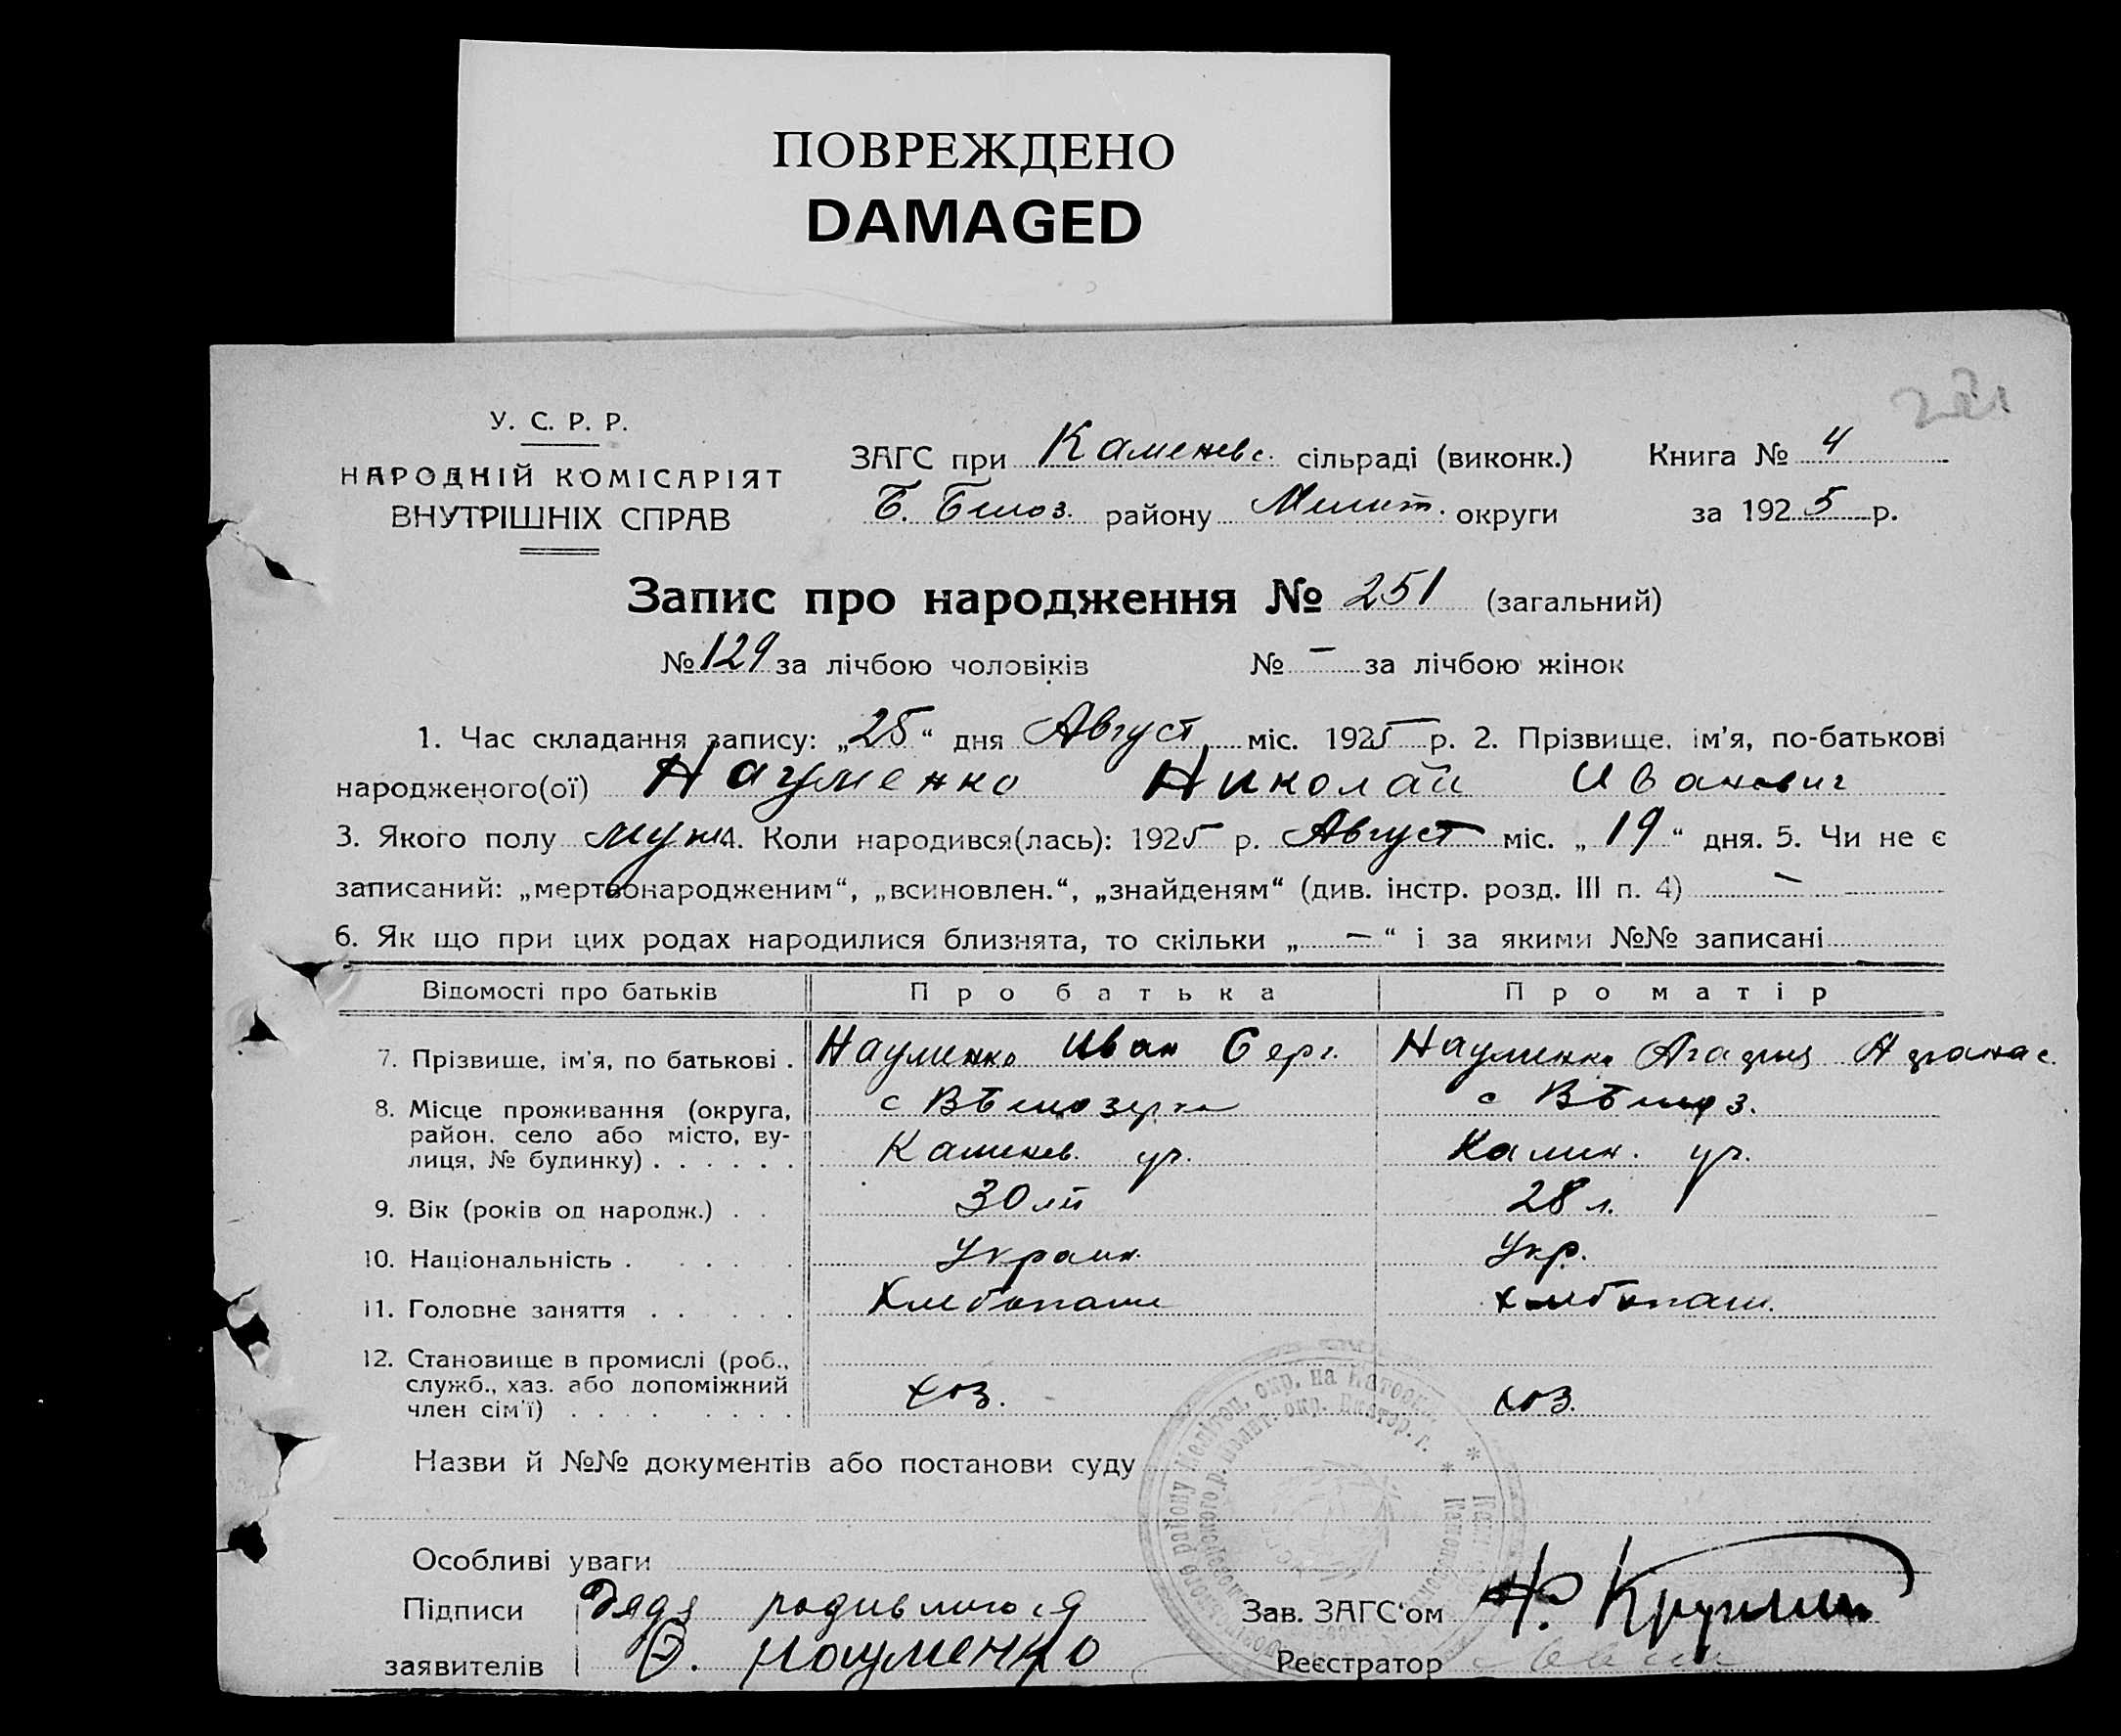 ПОВРЕЖДЕНО
DAMAGED
221
У. С. Р. Р.
НАРОДНІЙ КОМІСАРІЯТ
ВНУТРІШНІХ СПРАВ
ЗАГС при Каменевс. сільраді (виконк.) Книга № 4
Б. Белоз. району Мелит. округи за 1925 р.
Запис про народження № 251 (загальний)
№ 129 за лічбою чоловіків № – за лічбою жінок
1. Час складання запису: „25“ дня Август міс. 1925 р. 2. Прізвище, ім'я, по-батькові
народженого(ої) Науменко Николай Иванович
3. Якого полу муж 4. Коли народився(лась): 1925 р. Август міс. „19“ дня. 5. Чи не є
записаний: „мертвонародженим“, „всиновлен.“, „знайденям“ (див. інстр. розд. III п. 4) –
6. Як що при цих родах народилися близнята, то скільки „–“ і за якими №№ записані
Відомості про батьків Про батька Про матір
7. Прізвище, ім'я, по батькові . Науменко Иван Серг. Науменко Агафия Афанас.
8. Місце проживання (округа, с ВБелозерка с ВБелоз.
район, село або місто, ву-
лиця, № будинку) . . . . . . Каменев. уч. Камен. уч.
9. Вік (років од народж.) . . 30 лет 28 л.
10. Національність . . . . . . Украин. Укр.
11. Головне заняття . . . . . . Хлебопаш Хлебопаш.
12. Становище в промислі (роб.,
служб., хаз. або допоміжний хоз. хоз.
член сім'ї) . . . . . . . .
Назви й №№ документів або постанови суду
Особливі уваги
Підписи Дядя родивлогося Зав. ЗАГС'ом
заявителів Ф. Науменко Реєстратор